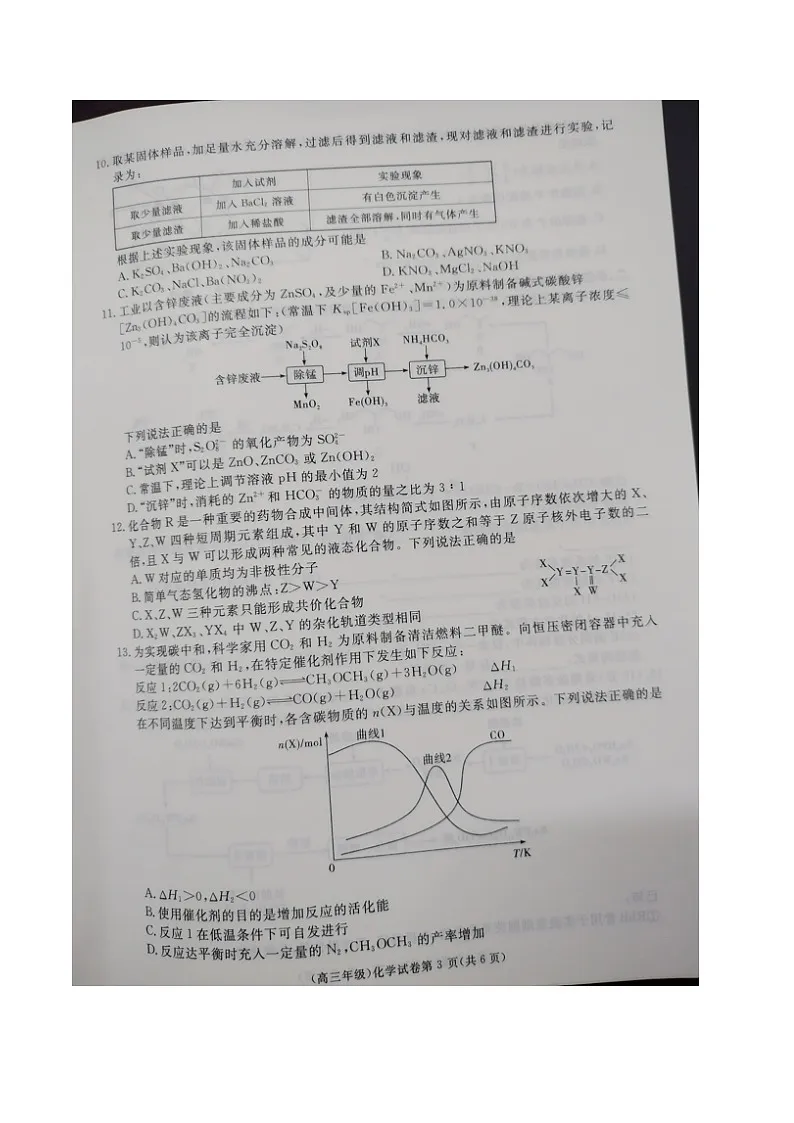 10.取某固体样品,加足量水充分溶解,过滤后得到滤液和滤渣,现对滤液和滤渣进行实验,记
录为:
加入试剂 实验现象
取少量滤液 加入 BaCl₂ 溶液 有白色沉淀产生
取少量滤渣 加入稀盐酸 滤渣全部溶解,同时有气体产生
根据上述实验现象,该固体样品的成分可能是
A.K₂SO₄、Ba(OH)₂、Na₂CO₃ B.Na₂CO₃、AgNO₃、KNO₃
C.K₂CO₃、NaCl、Ba(NO₃)₂ D.KNO₃、MgCl₂、NaOH
11.工业以含锌废液(主要成分为 ZnSO₄,及少量的 Fe²⁺、Mn²⁺)为原料制备碱式碳酸锌
[Zn₃(OH)₄CO₃]的流程如下:(常温下 Ksp[Fe(OH)₃]=1.0×10⁻³⁸,理论上某离子浓度≤
10⁻⁵,则认为该离子完全沉淀)
Na₂S₂O₈ 试剂X NH₄HCO₃
含锌废液 除锰 调pH 沉锌 Zn₃(OH)₄CO₃
MnO₂ Fe(OH)₃ 滤液
下列说法正确的是
A.“除锰”时,S₂O₈²⁻ 的氧化产物为 SO₄²⁻
B.“试剂 X”可以是 ZnO、ZnCO₃ 或 Zn(OH)₂
C.常温下,理论上调节溶液 pH 的最小值为 2
D.“沉锌”时,消耗的 Zn²⁺ 和 HCO₃⁻ 的物质的量之比为 3∶1
12.化合物 R 是一种重要的药物合成中间体,其结构简式如图所示,由原子序数依次增大的 X、
Y、Z、W 四种短周期元素组成,其中 Y 和 W 的原子序数之和等于 Z 原子核外电子数的二
倍,且 X 与 W 可以形成两种常见的液态化合物。下列说法正确的是
A.W 对应的单质均为非极性分子
B.简单气态氢化物的沸点:Z>W>Y
C.X、Z、W 三种元素只能形成共价化合物
D.X₂W、ZX₃、YX₄ 中 W、Z、Y 的杂化轨道类型相同
X X
Y=Y-Y-Z
X X W X
13.为实现碳中和,科学家用 CO₂ 和 H₂ 为原料制备清洁燃料二甲醚。向恒压密闭容器中充入
一定量的 CO₂ 和 H₂,在特定催化剂作用下发生如下反应:
反应 1:2CO₂(g)+6H₂(g)⇌CH₃OCH₃(g)+3H₂O(g) ΔH₁
反应 2:CO₂(g)+H₂(g)⇌CO(g)+H₂O(g) ΔH₂
在不同温度下达到平衡时,各含碳物质的 n(X)与温度的关系如图所示。下列说法正确的是
n(X)/mol 曲线1 曲线2 CO
0 T/K
A.ΔH₁>0,ΔH₂<0
B.使用催化剂的目的是增加反应的活化能
C.反应 1 在低温条件下可自发进行
D.反应达平衡时充入一定量的 N₂,CH₃OCH₃ 的产率增加
(高三年级)化学试卷第 3 页(共 6 页)